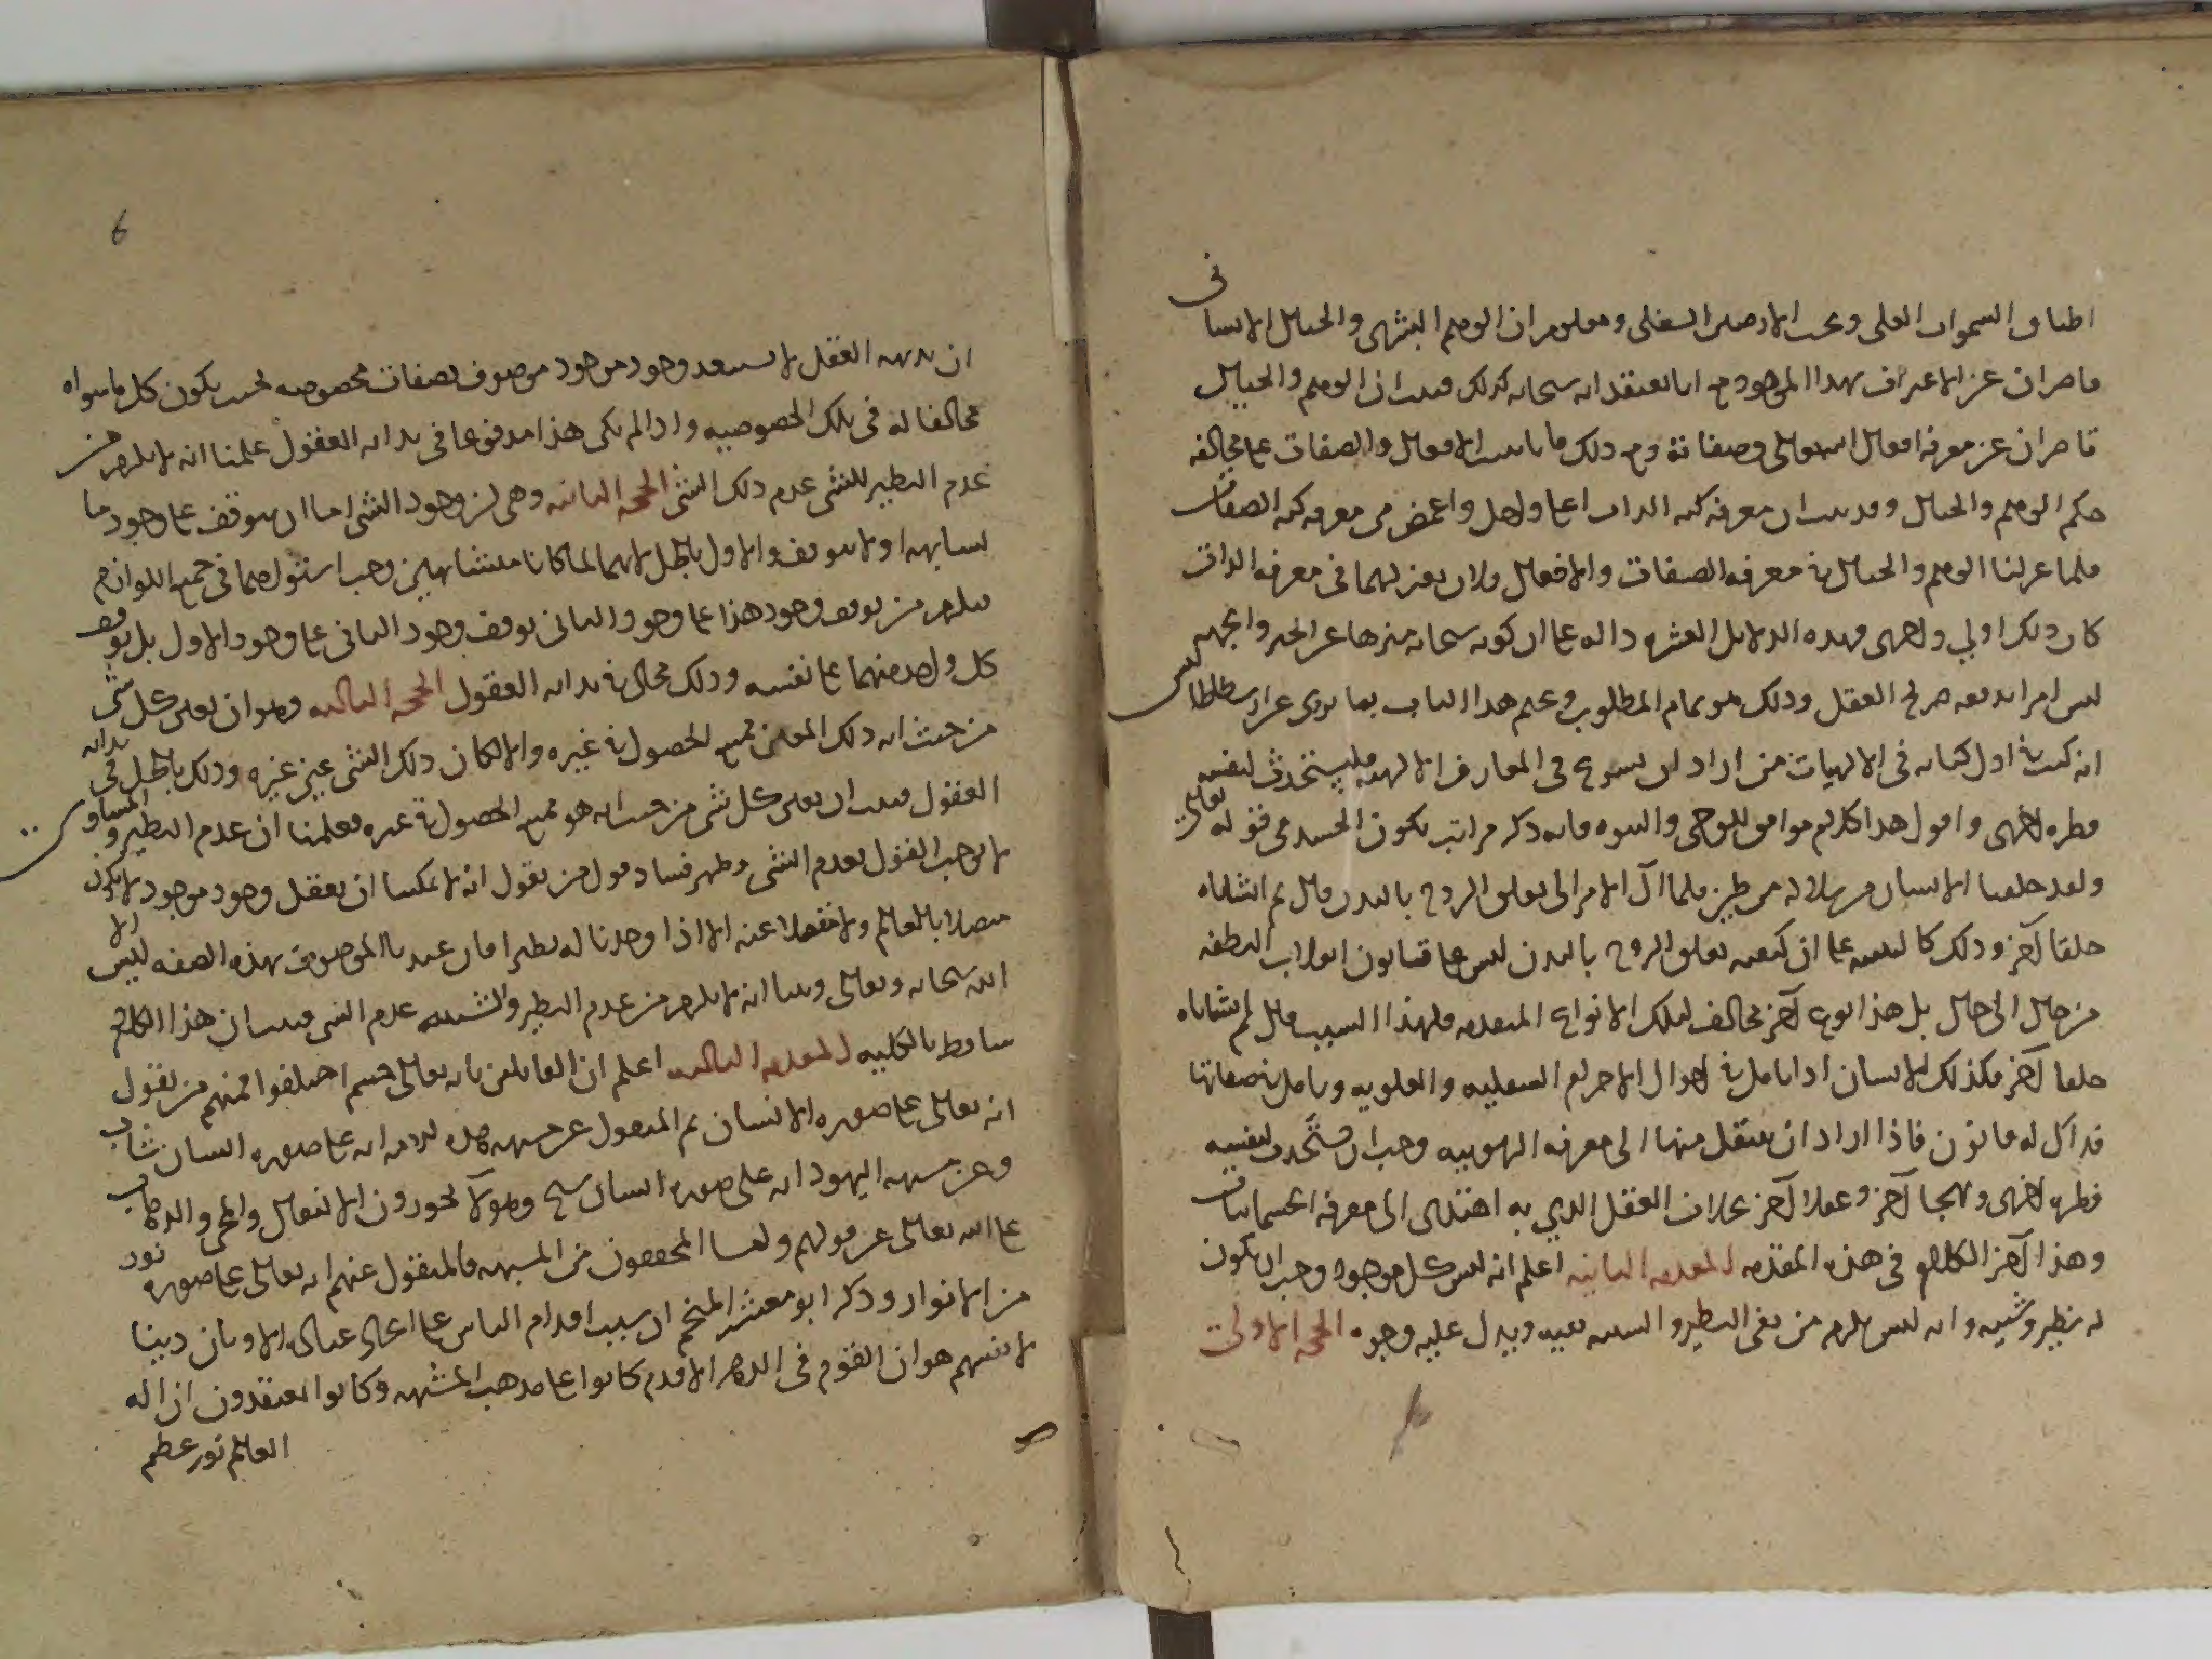 اطباق السموات العلى وتحت الارضين السفلى ومعلوم ان الوهم البشرى والخيال الانسانى
قاصران عن الاعتراف بهذا الموجود مع انا نعتقد انه سبحانه كذلك فثبت ان الوهم والخيال
قاصران عن معرفة افعال الله تعالى وصفاته ومع ذلك فانا نثبت الافعال والصفات على مخالفة
حكم الوهم والخيال وقد ثبت ان معرفة كنه الذات اعلى واجل واغمض من معرفة كنه الصفات
فلما عزلنا الوهم والخيال فى معرفة الصفات والافعال فلان نعزلهما فى معرفة الذات
كان ذلك اولى واحرى فهذه الدلايل العشرة دالة على ان كونه سبحانه منزها عن الحيز والجهة
ليس امرا يدفعه صريح العقل وذلك هو تمام المطلوب ونختم هذا الباب بما نروى عن ارسطاطاليس
انه كتب فى اول كتابه فى الالهيات من اراد ان يشرع فى المعارف الالهية فليستحدث لنفسه
فطرة اخرى واقول هذا كلام موافق للوحى والنبوة فانه ذكر مراتب تكون الجسد فى قوله تعالى
ولقد خلقنا الانسان من سلالة من طين فلما آل الامر الى تعلق الروح بالبدن قال ثم انشاناه
خلقا آخر وذلك كالتنبيه على ان كيفية تعلق الروح بالبدن ليس على قانون انقلاب النطفة
من حال الى حال بل هذا نوع آخر مخالف لتلك الانواع المتقدمة فلهذا السبب قال ثم انشاناه
خلقا آخر فكذلك الانسان اذا تامل فى احوال الاجرام السفلية والعلوية وتامل فى صفاتها
فذاك له قانون فاذا اراد ان ينتقل منها الى معرفة الربوبية وجب ان يستحدث لنفسه
فطرة اخرى ونهجا آخر وعقلا آخر بخلاف العقل الذي به اهتدى الى معرفة الجسمانيات
وهذا آخر الكلام فى هذه المقدمة المقدمة الثانية اعلم انه ليس كل موجود وجب ان يكون
له نظير وشبيه وانه ليس يلزم من نفى النظير والشبيه نفيه ويدل عليه وجوه الحجة الاولى
6
ان بديهة العقل لا تستبعد وجود موجود موصوف بصفات مخصوصة بحيث يكون كل ما سواه
مخالفا له فى تلك الخصوصية واذا لم يكن هذا مدفوعا فى بداية العقول علمنا انه لا يلزم من
عدم النظير للشى عدم ذلك الشى الحجة الثانية وهى ان وجود الشى اما ان يتوقف على وجود ما
يشابهه او لا يتوقف والاول باطل لانهما لما كانا متشابهين وجب استواهما فى جميع اللوازم
فيلزم من توقف وجود هذا على وجود الثانى توقف وجود الثانى على وجود الاول بل توقف
كل واحد منهما على نفسه وذلك محال فى بداية العقول الحجة الثالثة وهو ان تعين كل شى
من حيث انه ذلك المعين ممتنع الحصول فى غيره والا لكان ذلك الشى عين غيره وذلك باطل فى بداية
العقول فثبت ان تعين كل شى من حيث انه هو ممتنع الحصول فى غيره فعلمنا ان عدم النظير والمساوى
لا يوجب القول بعدم الشى وظهر فساد قول من يقول انه لا يمكننا ان نعقل وجود موجود لا يكون
متصلا بالعالم ولا منفصلا عنه الا اذا وجدنا له نظيرا فان عندنا الموصوف بهذه الصفة ليس الا
الله سبحانه وتعالى وبينا انه لا يلزم من عدم النظير والشبيه عدم الشى فثبت ان هذا الكلام
ساقط بالكلية المقدمة الثالثة اعلم ان القائلين بانه تعالى جسم اختلفوا فمنهم من يقول
انه تعالى على صورة الانسان ثم المنقول عن مشبهة انه على صورة انسان شاب
وعن مشبهة اليهود انه على صورة انسان شيخ وهولا لا يجوزون الانتقال والمجى والذهاب
على الله تعالى عن قولهم واما المحققون من المشبهة فالمنقول عنهم انه تعالى على صورة نور
من الانوار وذكر ابو معشر المنجم ان سبب اقدام الناس على اتخاذ عبادة الاوثان دينا
لانفسهم هو ان القوم فى الدهر الاقدم كانوا على مذهب المشبهة وكانوا يعتقدون ان اله
العالم نور عظيم